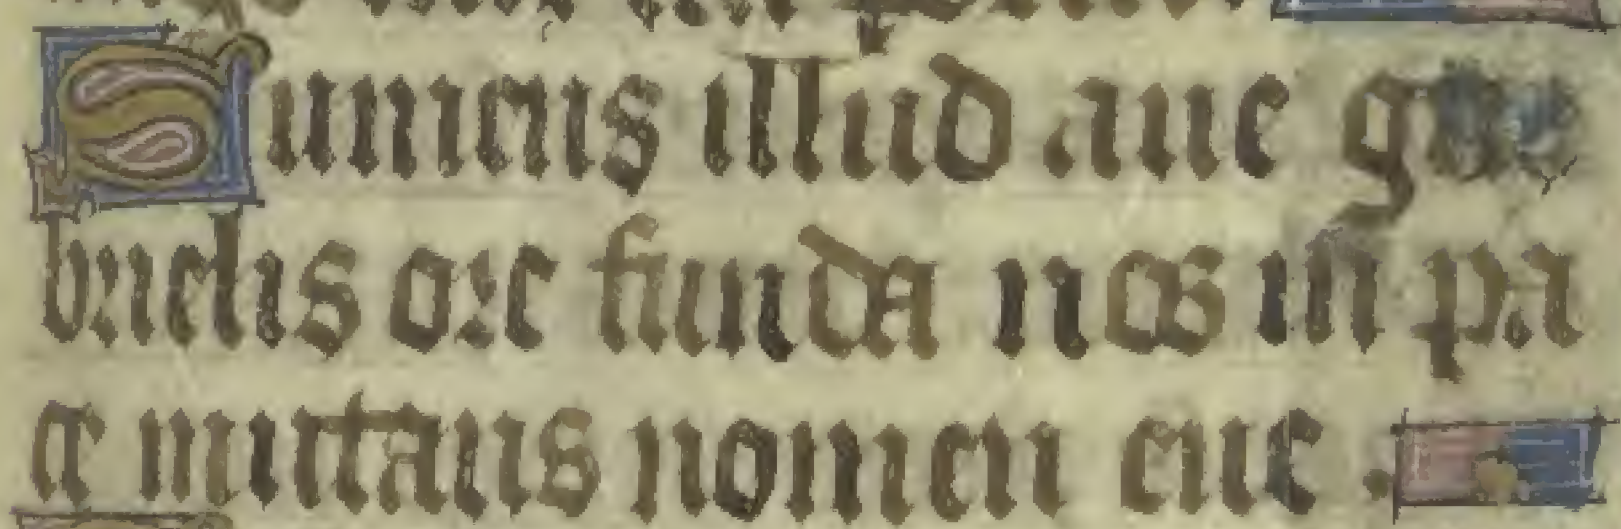 Sumens illud aue ga
brielis ore funda nos in pa
ce mutans nomen eue .